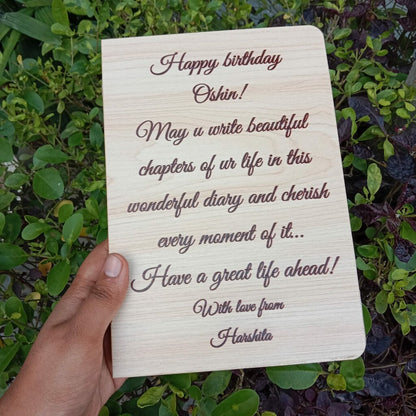 Happy birthday
Oshin!
May u write beautiful
chapters of ur life in this
wonderful diary and cherish
every moment of it...
Have a great life ahead!
With love from
Harshita